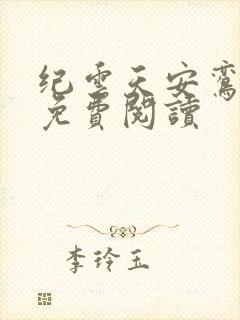 纪云天安鸾
免費閱讀
李玲玉